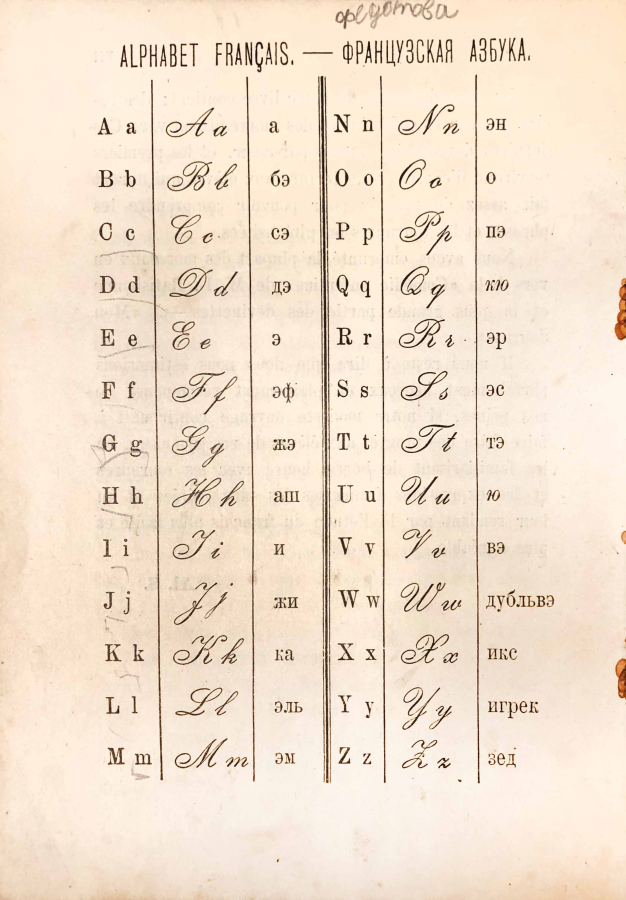 федотова
ALPHABET FRANÇAIS. — ФРАНЦУЗСКАЯ АЗБУКА.
A a A a а N n N n эн
B b B b бэ O o O o о
C c C c сэ P p P p пэ
D d D d дэ Q q Q q кю
E e E e э R r R r эр
F f F f эф S s S s эс
G g G g жэ T t T t тэ
H h H h аш U u U u ю
I i I i и V v V v вэ
J j J j жи W w W w дубльвэ
K k K k ка X x X x икс
L l L l эль Y y Y y игрек
M m M m эм Z z Z z зед